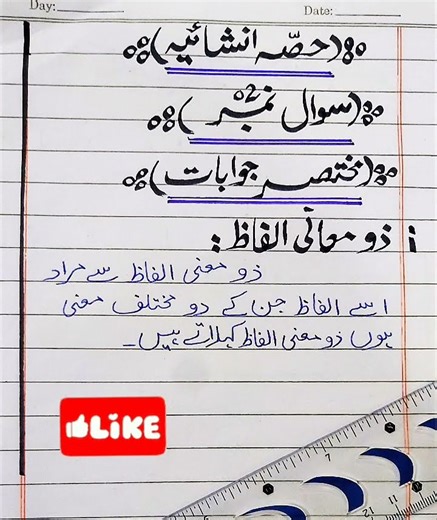 Day: Date:
(حصّہ انشائیہ)
(سوال نمبر 02)
(مختصر جوابات)
i ذو معانی الفاظ:
ذو معنی الفاظ سے مراد
ایسے الفاظ جن کے دو مختلف معنی
ہوں ذو معنی الفاظ کہلاتے ہیں۔
LIKE
7
11
12
6